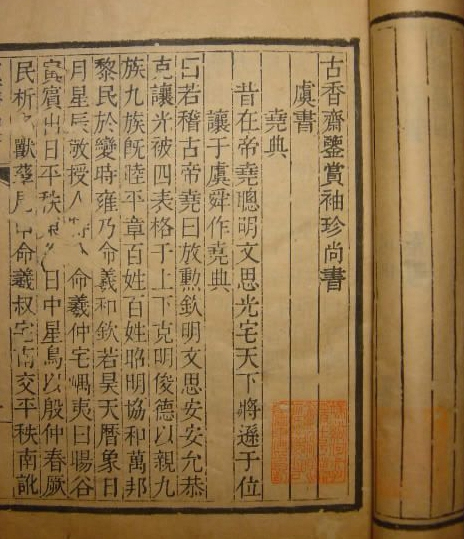 古香齋鑒賞袖珍尚書
虞書
堯典
昔在帝堯聰明文思光宅天下將遜于位
讓于虞舜作堯典
曰若稽古帝堯曰放勳欽明文思安安允恭
克讓光被四表格于上下克明俊德以親九
族九族既睦平章百姓百姓昭明協和萬邦
黎民於變時雍乃命羲和欽若昊天暦象日
月星辰敬授人命羲仲宅嵎夷曰暘谷
寅賓出日平秩日中星鳥以殷仲春厥
民析獸孳命羲叔宅南交平秩南訛